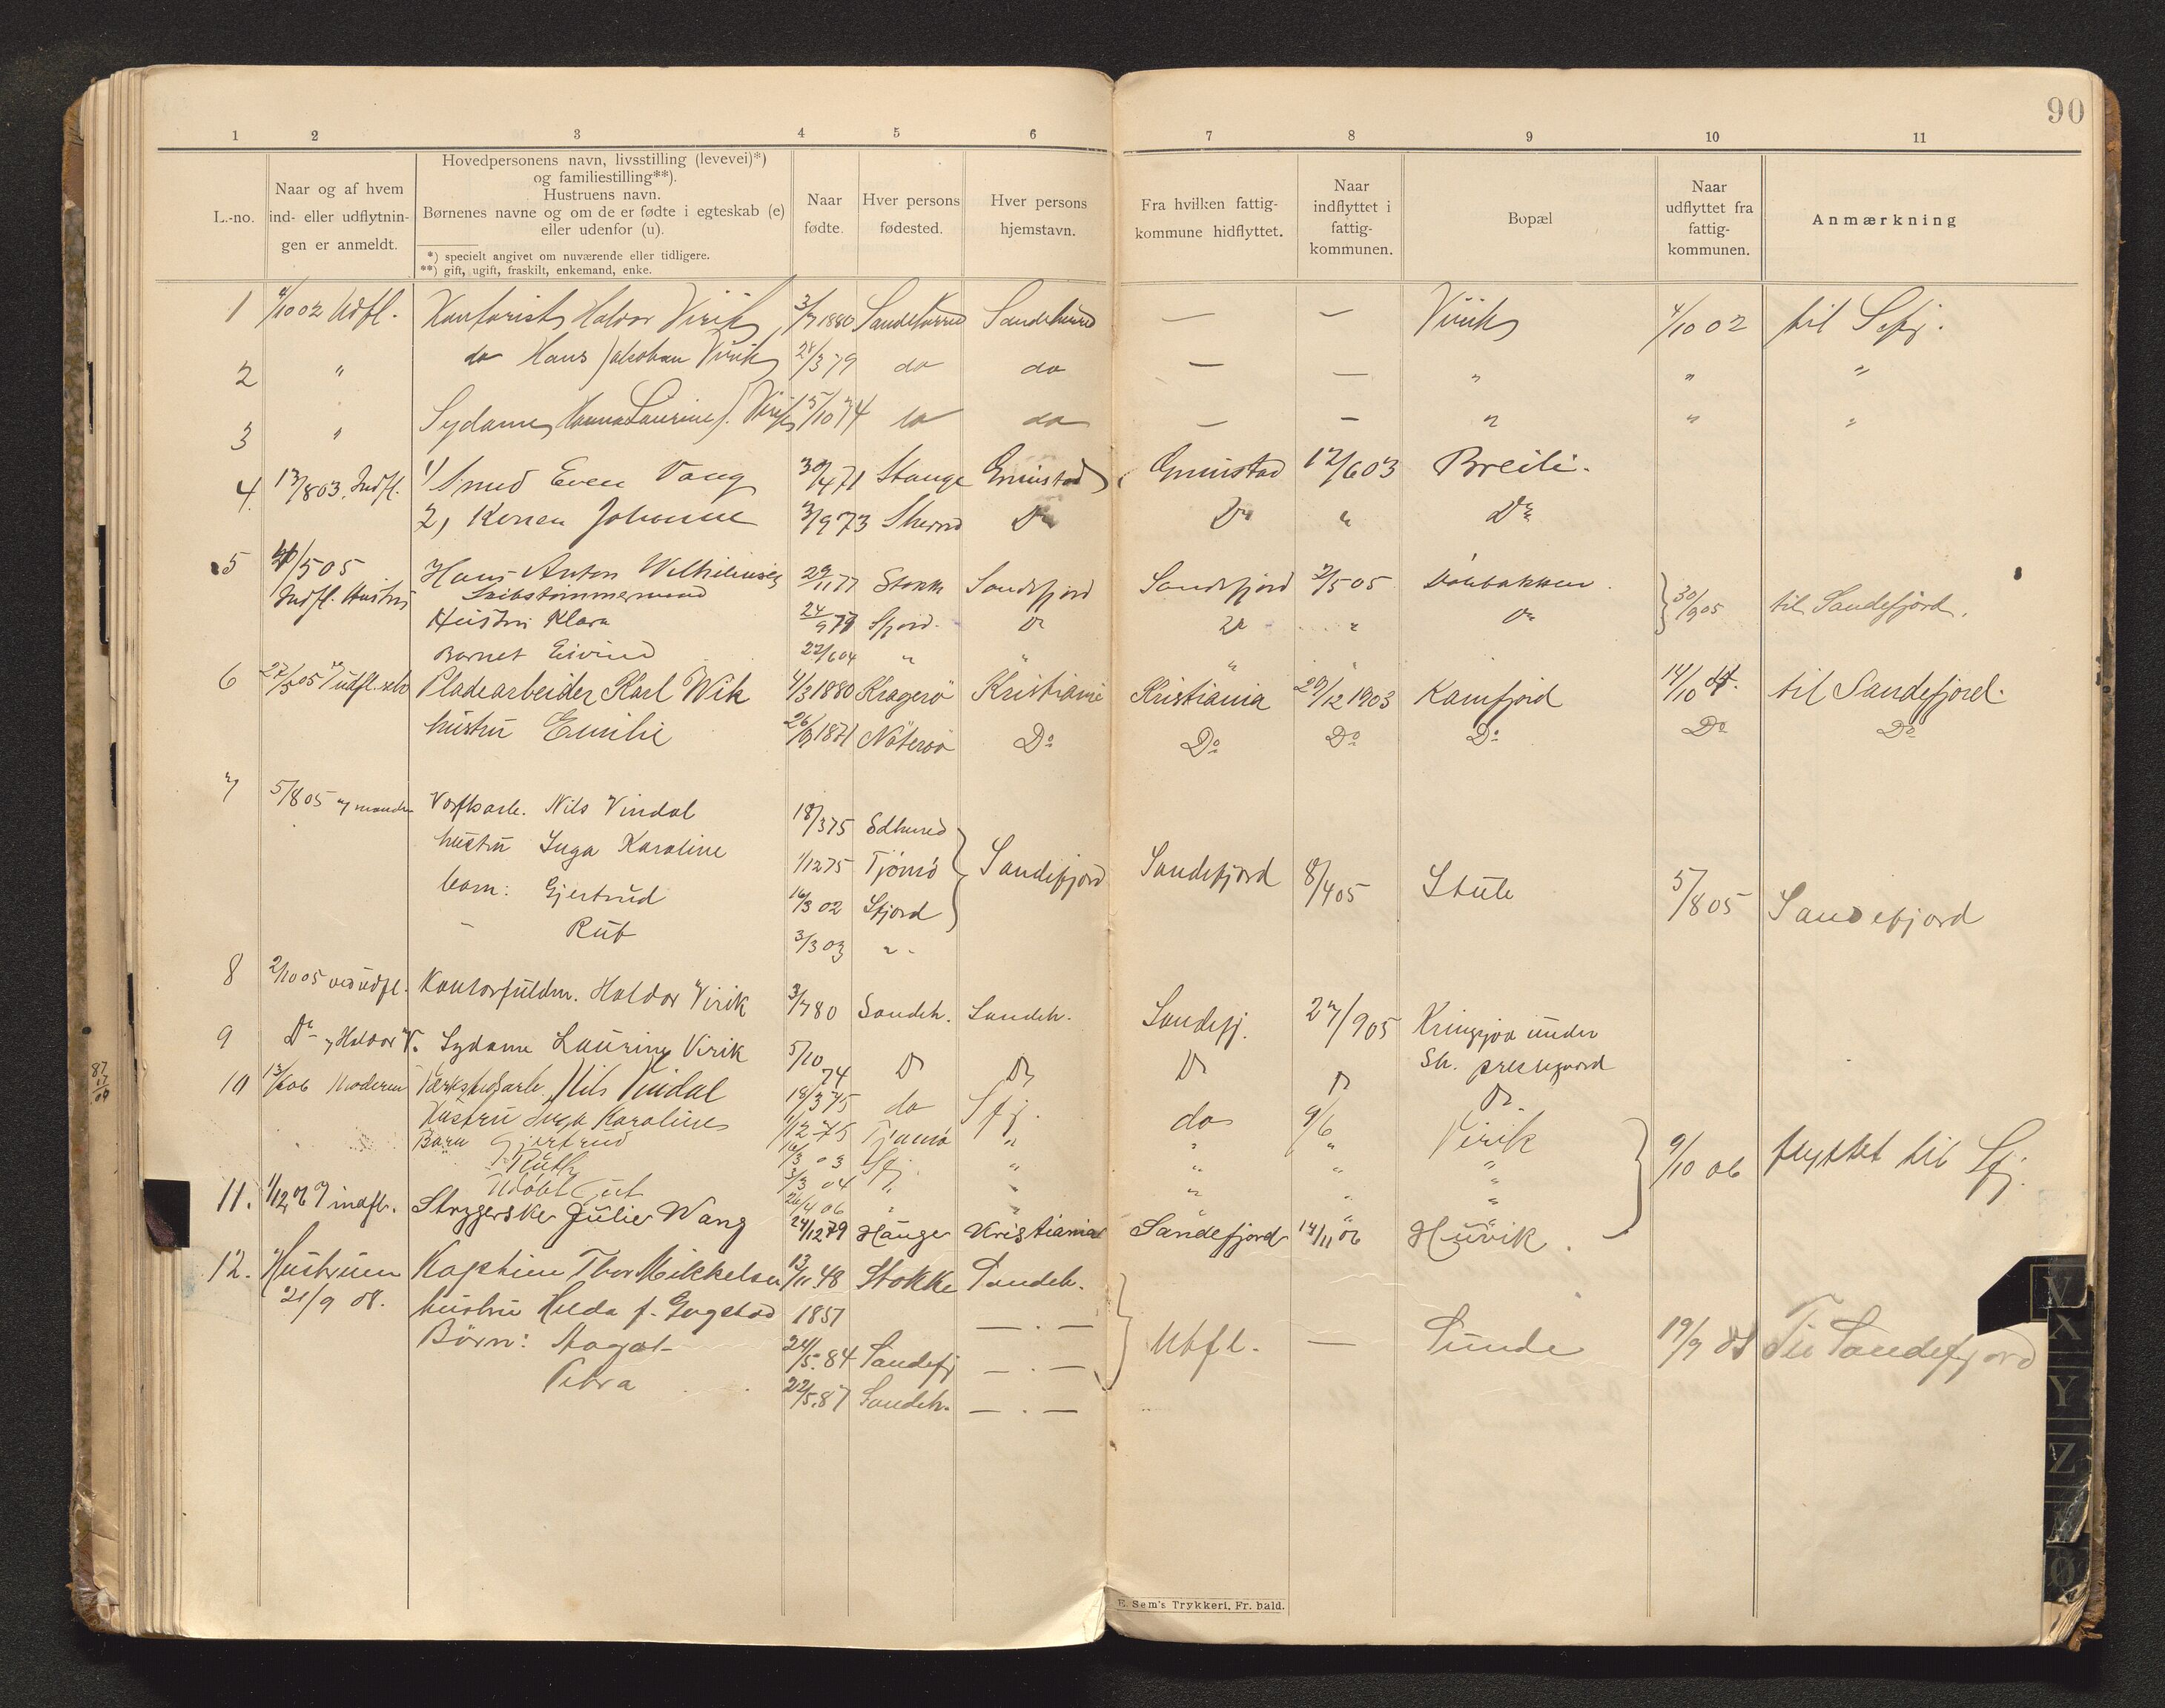 90
1 2 3 4 5 6 7 8 9 10 11
L.-no.
Naar og af hvem
ind- eller udflytnin-
gen er anmeldt.
Hovedpersonens navn, livsstilling (levevei)*)
og familiestilling**).
Hustruens navn.
Børnenes navne og om de er fødte i egteskab (e)
eller udenfor (u).
*) specielt angivet om nuværende eller tidligere.
**) gift, ugift, fraskilt, enkemand, enke.
Naar
fødte.
Hver persons
fødested.
Hver persons
hjemstavn.
Fra hvilken fattig-
kommune hidflyttet.
Naar
indflyttet i
fattig-
kommunen.
Bopæl
Naar
udflyttet fra
fattig-
kommunen.
Anmærkning
1 4/10 02 Udfl. Kontorist Haldor Virik 3/7 1880 Sandeherred Sandeherred — — Virik 4/10 02 til Sefj.
2 " do Hans Jakobsen Virik 28/3 79 do do — — " " "
3 " Sydame Hanna Laurine J. Virik 5/10 74 do do — — " " "
4. 13/8 03. Indfl. 1) Smed Even Vang 30/4 71 Stange Grimstad Grimstad 12/6 03 Breili.
2, Konen Johanne 3/9 73 Sherred Do Do " Do
5 /5 05 Hans Anton Wilhelmsen 29/11 77 Stokke Sandefjord Sandefjord 2/5 05
Indfl. Hustru
Hustru Klara 24/9 79 Sfjord. Do Do " Do 30/9 05 til Sandefjord.
Barnet Eivind 22/6 04 " " " "
6 27/5 05 udfl. selv Pladearbeider Karl Wik 4/3 1880 Kragerö Kristiania Kristiania 29/12 1903 Kamfjord 14/10 04. til Sandefjord.
hustru Emilie 26/9 1871 Nöterö Do Do Do Do Do Do
7 5/8 05 v manden Verftsarb. Nils Vindal 18/3 75 Sdherred
hustru Inga Karoline 1/12 75 Tjömö Sandefjord Sandefjord 8/4 05 Stub 5/8 05 Sandefjord
barn: Gjertrud 16/3 02 Sfjord
- Rut 3/3 03 " -
8 2/10 05 ved udfl. Kontorfuldm. Haldor Virik 3/7 80 Sandeh. Sandeh. Sandefj. 27/9 05 Kringsjaa under
Sh. prestegaard
9 Do v Haldor V. Sydame Laurine Virik 5/10 74 Do Do Do Do Do
10 13/6 06 Moderen Værkstedsarb. Nils Vindal 18/3 75 do Sfj. do 9/6 Virik 9/10 06 flyttet til Sfj.
Hustru Inga Karoline 1/12 75 Tjömö " " " "
Barn Gjertrud 16/3 03 Sfj. " " " "
Ruth 3/3 04 " " " " "
Udöbt Gut 26/4 06 " " " " "
11. 1/12 06 indfl. Strygerske Julie Wang 24/12 79 Hauge Kristiania Sandefjord 14/11 06 Huvik.
12. Husbjuen Kaptein Thor Mikkelsen 13/11 48 Stokke Sandeh.
21/9 08. hustru Hilda f. Gogstad 1851 — . —
Börn: Aagot 24/5. 84 Sandefj — . — Udfl. — Sunde 19/9 08 Til Sandefjord
Petra 22/5. 87 Sandeh. — . —
87
17
09
E. Sem's Trykkeri, Fr. hald.
V
X
Y
Z
Ø